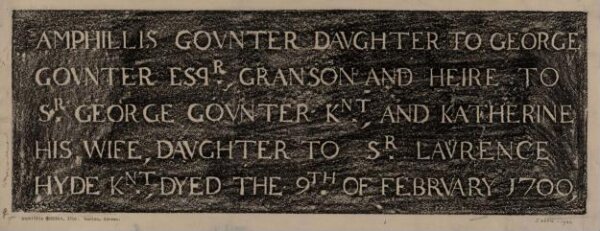 AMPHILLIS GOVNTER DAVGHTER TO GEORGE
GOVNTER ESQR, GRANSON AND HEIRE TO
SR. GEORGE GOVNTER KNT, AND KATHERINE
HIS WIFE, DAVGHTER TO SR. LAVRENCE
HYDE KNT, DYED THE 9TH. OF FEBRVARY 1700,